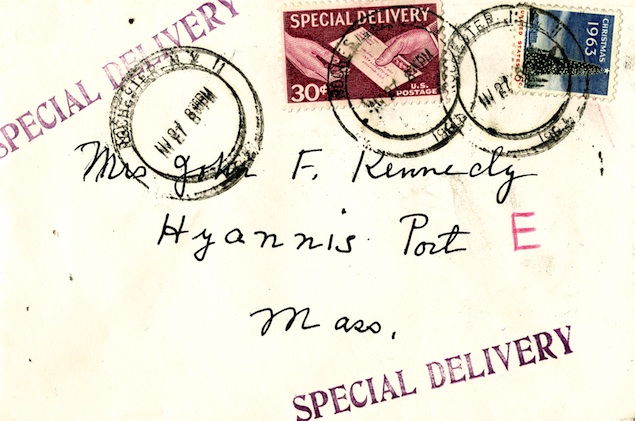 SPECIAL DELIVERY
SPECIAL DELIVERY
30¢
U.S.
POSTAGE
CHRISTMAS
1963
ROCHESTER, N.Y. 11
27
8 PM
Mrs John F. Kennedy
Hyannis Port
E
Mass.
SPECIAL DELIVERY